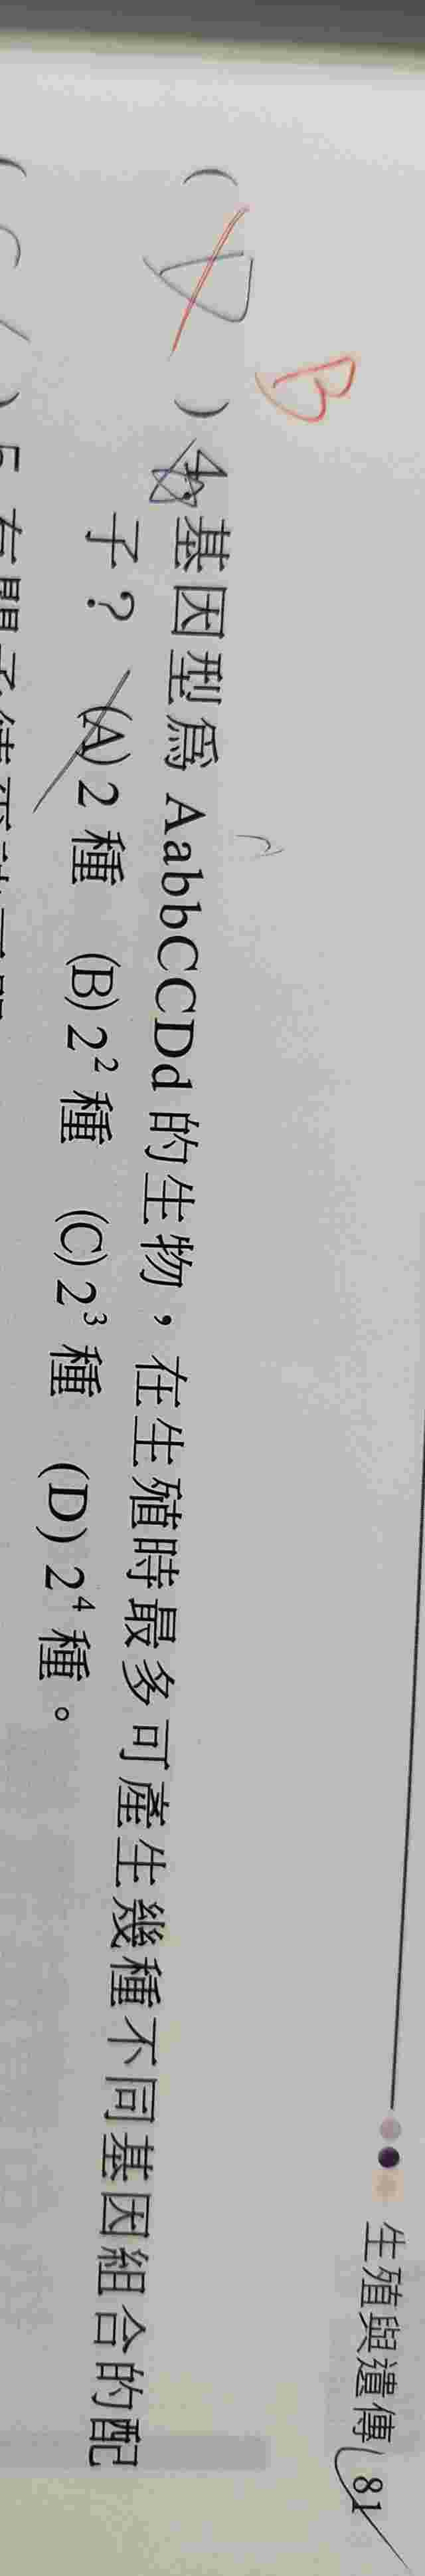 生殖與遺傳 81
B
( D ) 4. 基因型爲 AabbCCDd 的生物，在生殖時最多可產生幾種不同基因組合的配
子？ (A) 2 種 (B) 2² 種 (C) 2³ 種 (D) 2⁴ 種。